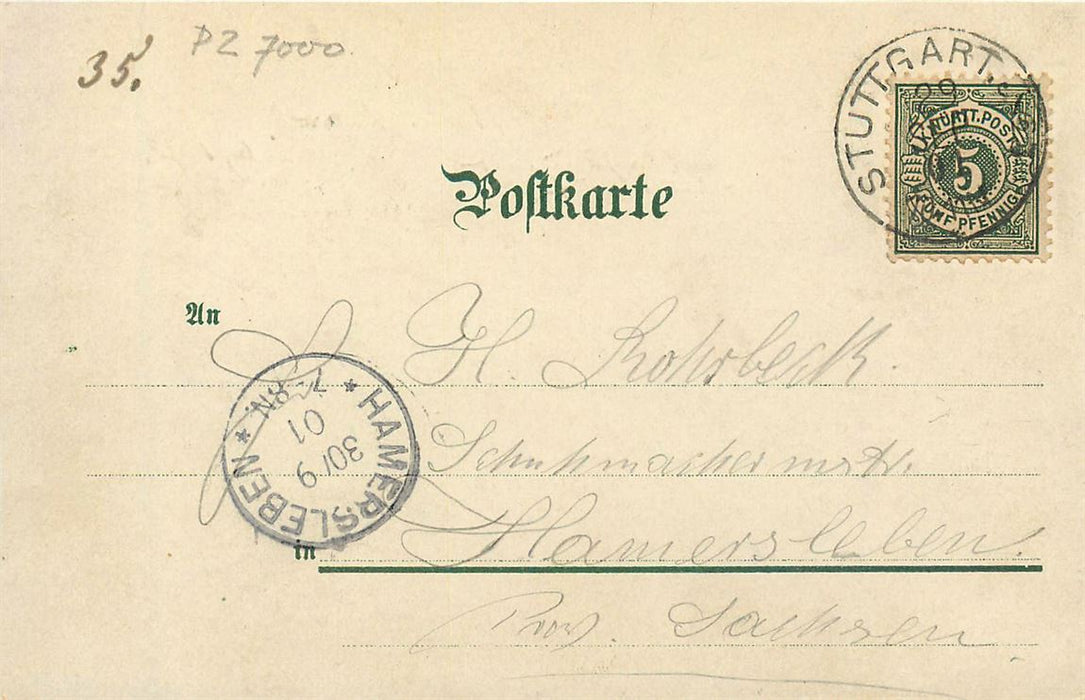 35.
PZ 7000
STUTTGART
29
K. WÜRTT. POST
5
FÜNF PFENNIG
Poſtkarte
An
H. Rohrbeck.
Schuhmachermstr.
HAMERSLEBEN
30/9
01
7-8N.
in Hamersleben.
Prov. Sachsen